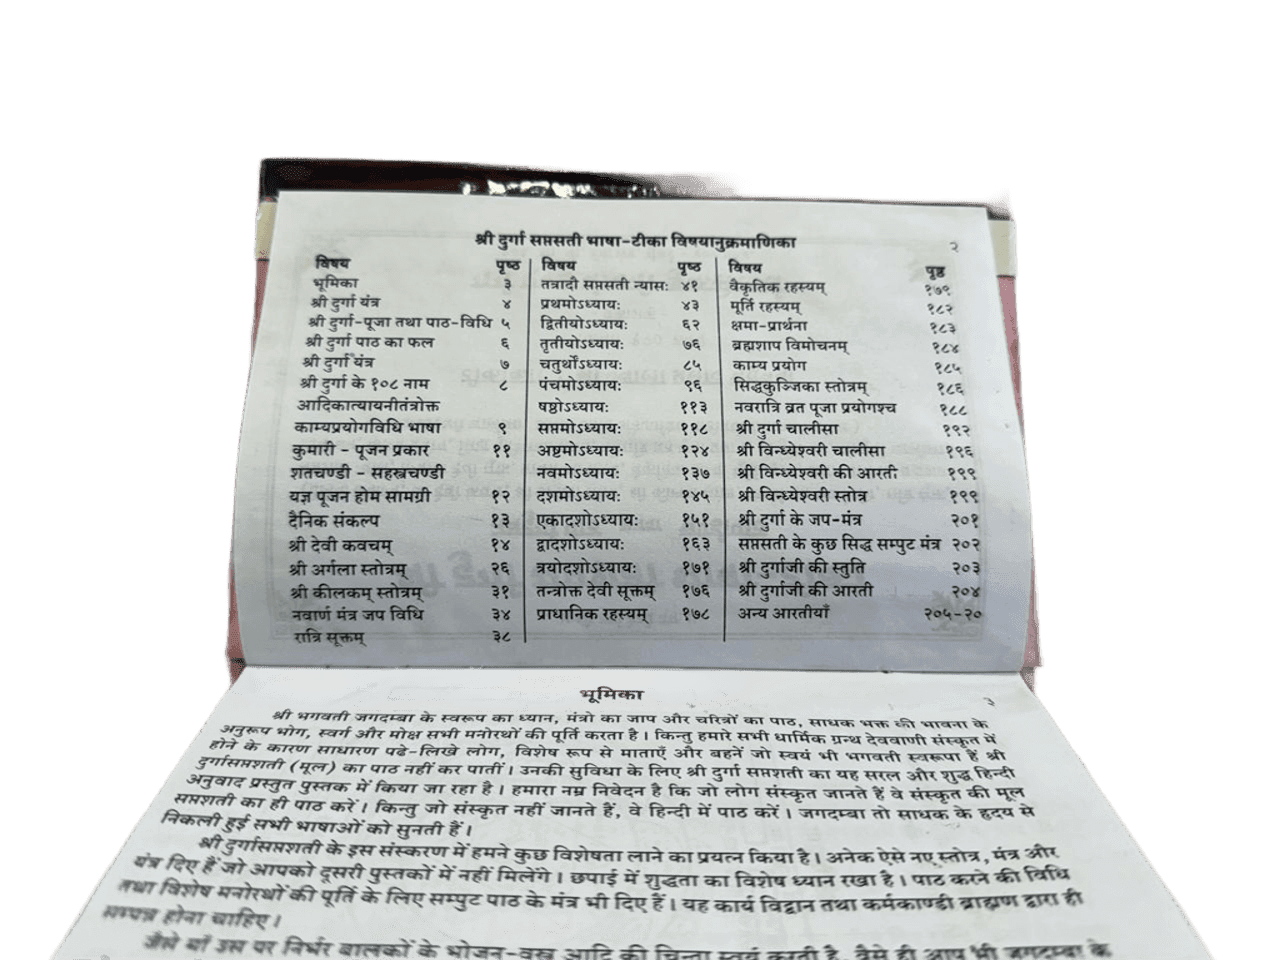 श्री दुर्गा सप्तसती भाषा-टीका विषयानुक्रमाणिका २
विषय पृष्ठ
भूमिका ३
श्री दुर्गा यंत्र ४
श्री दुर्गा-पूजा तथा पाठ-विधि ५
श्री दुर्गा पाठ का फल ६
श्री दुर्गा यंत्र ७
श्री दुर्गा के १०८ नाम ८
आदिकात्यायनीतंत्रोक्त
काम्यप्रयोगविधि भाषा ९
कुमारी - पूजन प्रकार ११
शतचण्डी - सहस्त्रचण्डी
यज्ञ पूजन होम सामग्री १२
दैनिक संकल्प १३
श्री देवी कवचम् १४
श्री अर्गला स्तोत्रम् २६
श्री कीलकम् स्तोत्रम् ३१
नवार्ण मंत्र जप विधि ३४
रात्रि सूक्तम् ३८
विषय पृष्ठ
तत्रादौ सप्तसती न्यासः ४१
प्रथमोऽध्यायः ४३
द्वितीयोऽध्यायः ६२
तृतीयोऽध्यायः ७६
चतुर्थोंऽध्यायः ८५
पंचमोऽध्यायः ९६
षष्ठोऽध्यायः ११३
सप्तमोऽध्यायः ११८
अष्टमोऽध्यायः १२४
नवमोऽध्यायः १३७
दशमोऽध्यायः १४५
एकादशोऽध्यायः १५१
द्वादशोऽध्यायः १६३
त्रयोदशोऽध्यायः १७१
तन्त्रोक्त देवी सूक्तम् १७६
प्राधानिक रहस्यम् १७८
विषय पृष्ठ
वैकृतिक रहस्यम् १७९
मूर्ति रहस्यम् १८२
क्षमा-प्रार्थना १८३
ब्रह्मशाप विमोचनम् १८४
काम्य प्रयोग १८५
सिद्धकुञ्जिका स्तोत्रम् १८६
नवरात्रि व्रत पूजा प्रयोगश्च १८८
श्री दुर्गा चालीसा १९२
श्री विन्ध्येश्वरी चालीसा १९६
श्री विन्ध्येश्वरी की आरती १९९
श्री विन्ध्येश्वरी स्तोत्र १९९
श्री दुर्गा के जप-मंत्र २०१
सप्तसती के कुछ सिद्ध सम्पुट मंत्र २०२
श्री दुर्गाजी की स्तुति २०३
श्री दुर्गाजी की आरती २०४
अन्य आरतीयाँ २०५-२०
भूमिका ३
श्री भगवती जगदम्बा के स्वरूप का ध्यान, मंत्रो का जाप और चरित्रों का पाठ, साधक भक्त की भावना के
अनुरूप भोग, स्वर्ग और मोक्ष सभी मनोरथों की पूर्ति करता है। किन्तु हमारे सभी धार्मिक ग्रन्थ देववाणी संस्कृत में
होने के कारण साधारण पढे-लिखे लोग, विशेष रूप से माताएँ और बहनें जो स्वयं भी भगवती स्वरूपा हैं श्री
दुर्गासप्तशती (मूल) का पाठ नहीं कर पातीं। उनकी सुविधा के लिए श्री दुर्गा सप्तशती का यह सरल और शुद्ध हिन्दी
अनुवाद प्रस्तुत पुस्तक में किया जा रहा है। हमारा नम्र निवेदन है कि जो लोग संस्कृत जानते हैं वे संस्कृत की मूल
सप्तशती का ही पाठ करें। किन्तु जो संस्कृत नहीं जानते हैं, वे हिन्दी में पाठ करें। जगदम्बा तो साधक के हृदय से
निकली हुई सभी भाषाओं को सुनती हैं।
श्री दुर्गासप्तशती के इस संस्करण में हमने कुछ विशेषता लाने का प्रयत्न किया है। अनेक ऐसे नए स्तोत्र, मंत्र और
यंत्र दिए हैं जो आपको दूसरी पुस्तकों में नहीं मिलेंगे। छपाई में शुद्धता का विशेष ध्यान रखा है। पाठ करने की विधि
तथा विशेष मनोरथों की पूर्ति के लिए सम्पुट पाठ के मंत्र भी दिए हैं। यह कार्य विद्वान तथा कर्मकाण्डी ब्राह्मण द्वारा ही
सम्पन्न होना चाहिए।
जैसे माँ उस पर निर्भर बालकों के भोजन-वस्त्र आदि की चिन्ता स्वयं करती है, वैसे ही आप भी जगदम्बा के